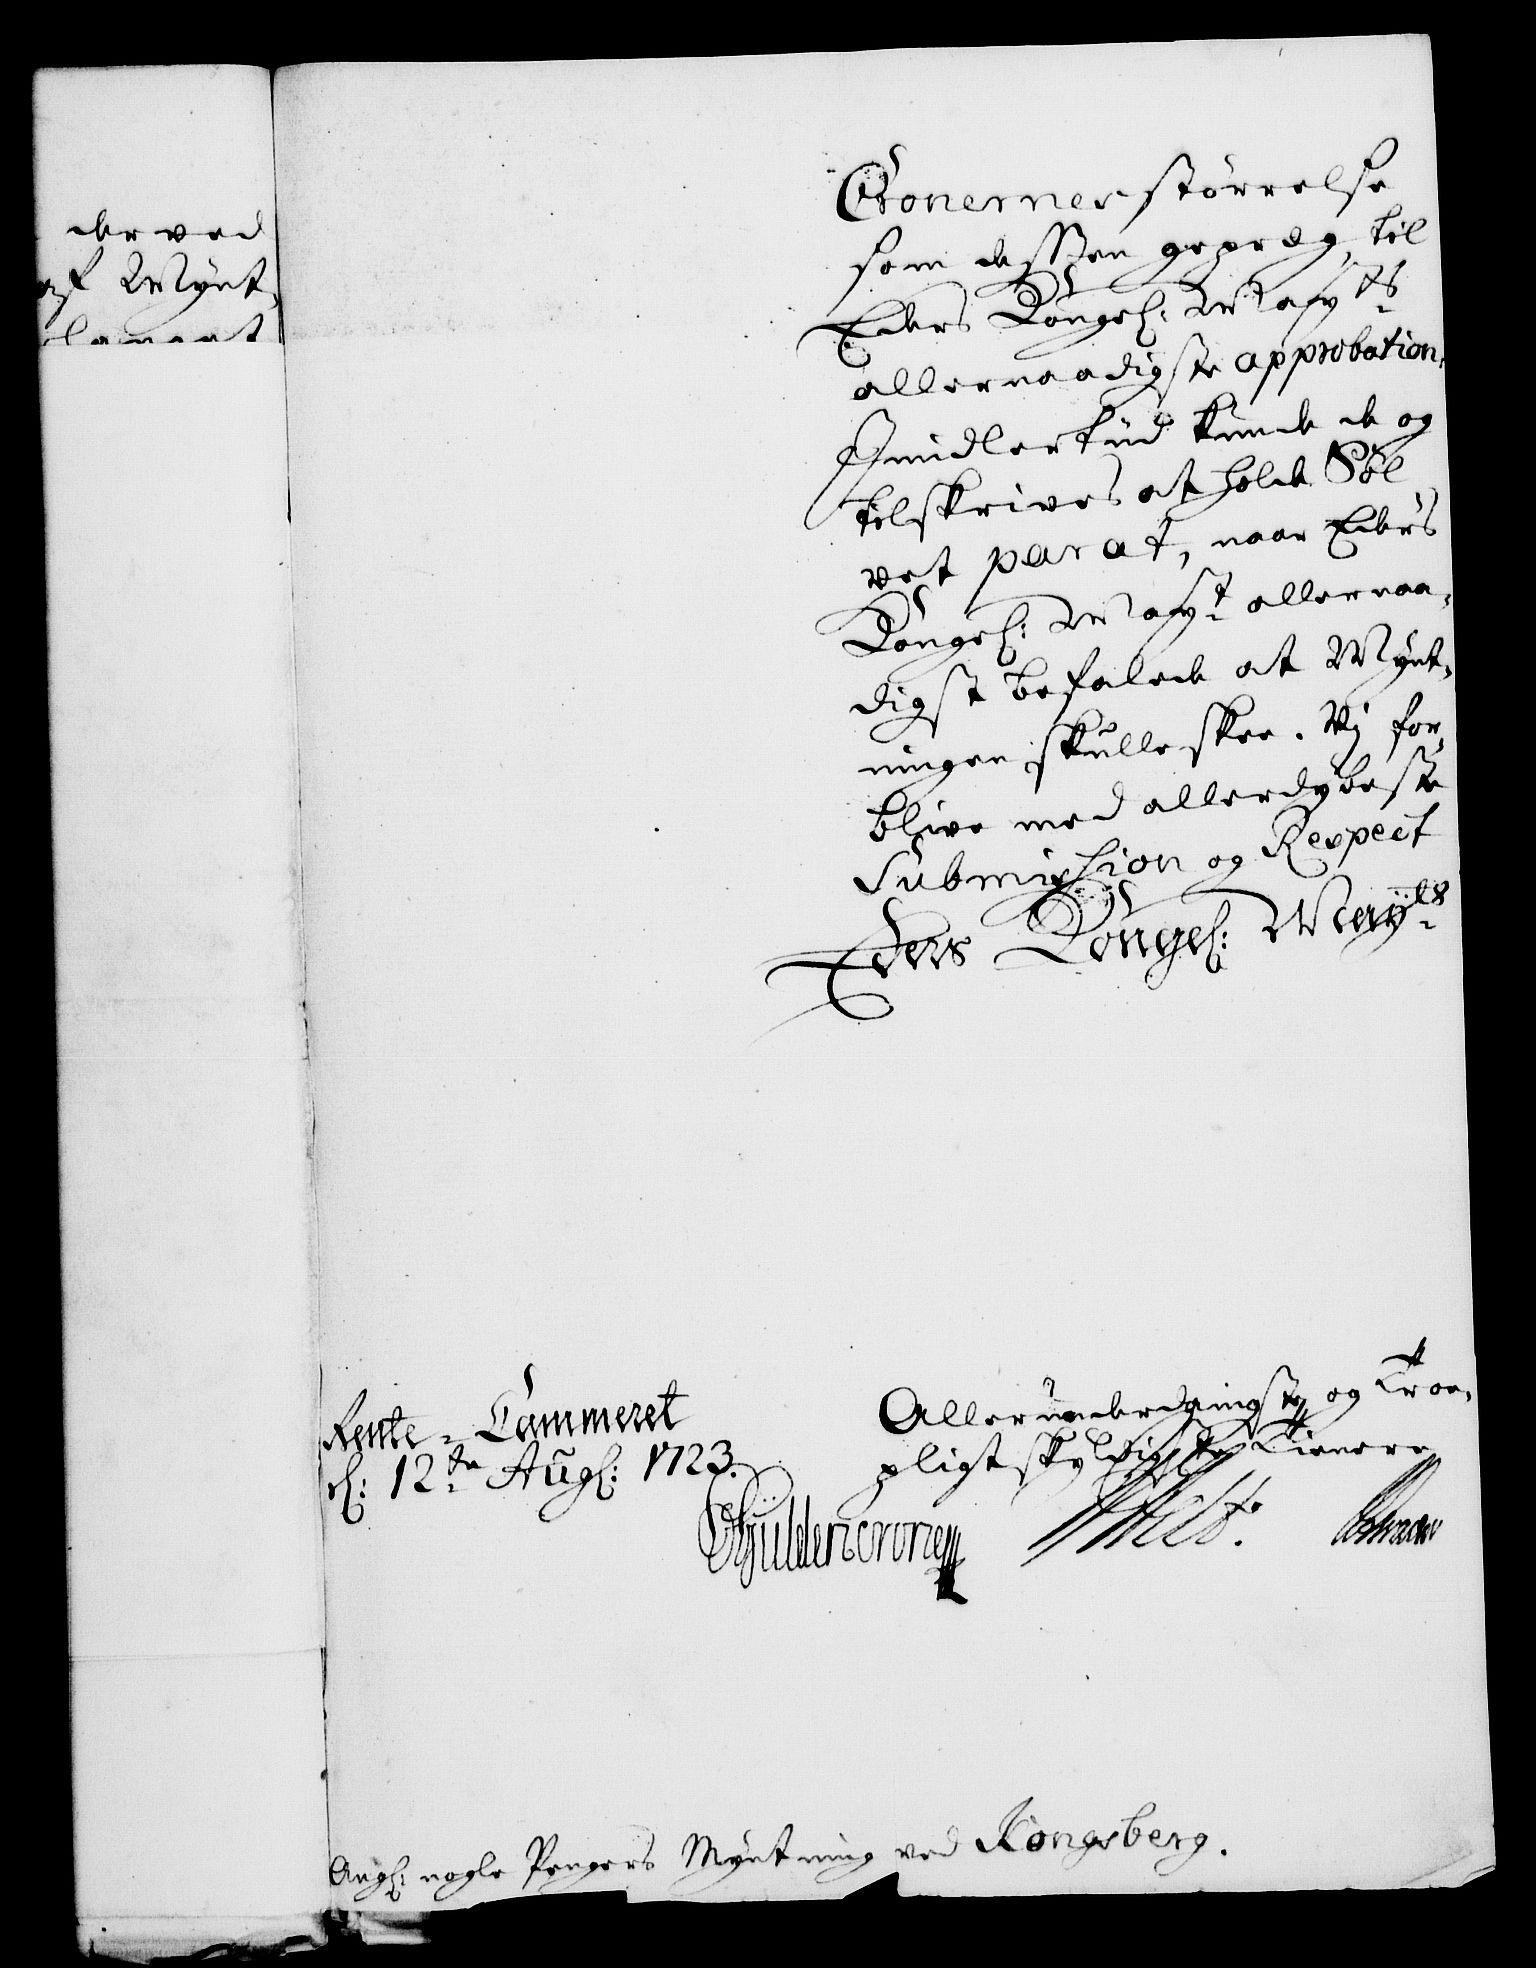 derved
af Mynt-
Cronernes størrelse
som dessen gepræg, til
Eders Kongel: Mayts
allernaadigste approbation.
Imidlertiid kunde de og
tilskrives at holde Søl
vet parat, naar Eders
Kongel: Mayt allernaa-
digst befalede at Mynt-
ningen skulle skee. Vj for-
blive med allerdybeste
Submission og Respect
Eders Kongel: Mayts
Rente-Cammeret
d: 12te Aug: 1723.
Allerunderdanigste og Troe-
pligtskyldigste Tienere
Gyldencrone
Ang: nogle Pengers Myntning ved Kongsberg.